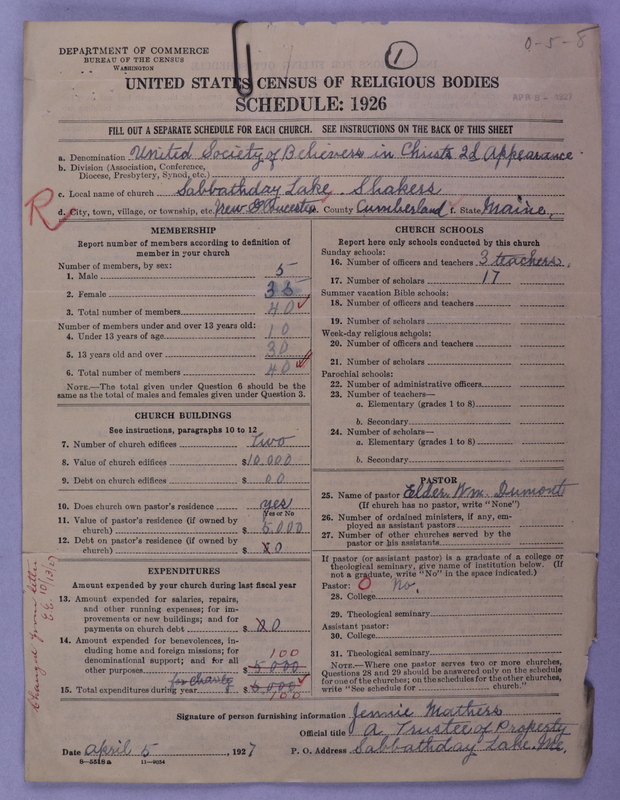 0-5-8
1
DEPARTMENT OF COMMERCE
BUREAU OF THE CENSUS
WASHINGTON
UNITED STATES CENSUS OF RELIGIOUS BODIES
SCHEDULE: 1926
FILL OUT A SEPARATE SCHEDULE FOR EACH CHURCH. SEE INSTRUCTIONS ON THE BACK OF THIS SHEET
a. Denomination United Society of Believers in Christs 2d Appearance
b. Division (Association, Conference, Diocese, Presbytery, Synod, etc.)
c. Local name of church Sabbathday Lake. Shakers
R
d. City, town, village, or township, etc. New Gloucester e. County Cumberland f. State Maine,
MEMBERSHIP
Report number of members according to definition of member in your church
Number of members, by sex:
1. Male 5
2. Female 35
3. Total number of members 40
Number of members under and over 13 years old:
4. Under 13 years of age 10
5. 13 years old and over 30
6. Total number of members 40
NOTE.—The total given under Question 6 should be the same as the total of males and females given under Question 3.
CHURCH BUILDINGS
See instructions, paragraphs 10 to 12
7. Number of church edifices Two
8. Value of church edifices $10.000
9. Debt on church edifices 00
10. Does church own pastor's residence yes
Yes or No
11. Value of pastor's residence (if owned by church) $ 5.000
12. Debt on pastor's residence (if owned by church) $ 0
EXPENDITURES
Amount expended by your church during last fiscal year
13. Amount expended for salaries, repairs, and other running expenses; for improvements or new buildings; and for payments on church debt $ 0
14. Amount expended for benevolences, including home and foreign missions; for denominational support; and for all other purposes $ 5.000 100
for Charity
15. Total expenditures during year $ 5.000 100
Changed from letter
CHURCH SCHOOLS
Report here only schools conducted by this church
Sunday schools:
16. Number of officers and teachers 3 teachers.
17. Number of scholars 17
Summer vacation Bible schools:
18. Number of officers and teachers
19. Number of scholars
Week-day religious schools:
20. Number of officers and teachers
21. Number of scholars
Parochial schools:
22. Number of administrative officers
23. Number of teachers—
a. Elementary (grades 1 to 8)
b. Secondary
24. Number of scholars—
a. Elementary (grades 1 to 8)
b. Secondary
PASTOR
25. Name of pastor Elder. Wm. Dumont
(If church has no pastor, write "None")
26. Number of ordained ministers, if any, employed as assistant pastors
27. Number of other churches served by the pastor or his assistants
If pastor (or assistant pastor) is a graduate of a college or theological seminary, give name of institution below. (If not a graduate, write "No" in the space indicated.)
Pastor: O No.
28. College
29. Theological seminary
Assistant pastor:
30. College
31. Theological seminary
NOTE.—Where one pastor serves two or more churches, Questions 28 and 29 should be answered only on the schedule for one of the churches; on the schedules for the other churches, write "See schedule for church."
Signature of person furnishing information Jennie Mathers
Official title A Trustee of Property
Date April 5, 1927 P. O. Address Sabbathday Lake. Me.
8-5518a 11-9054